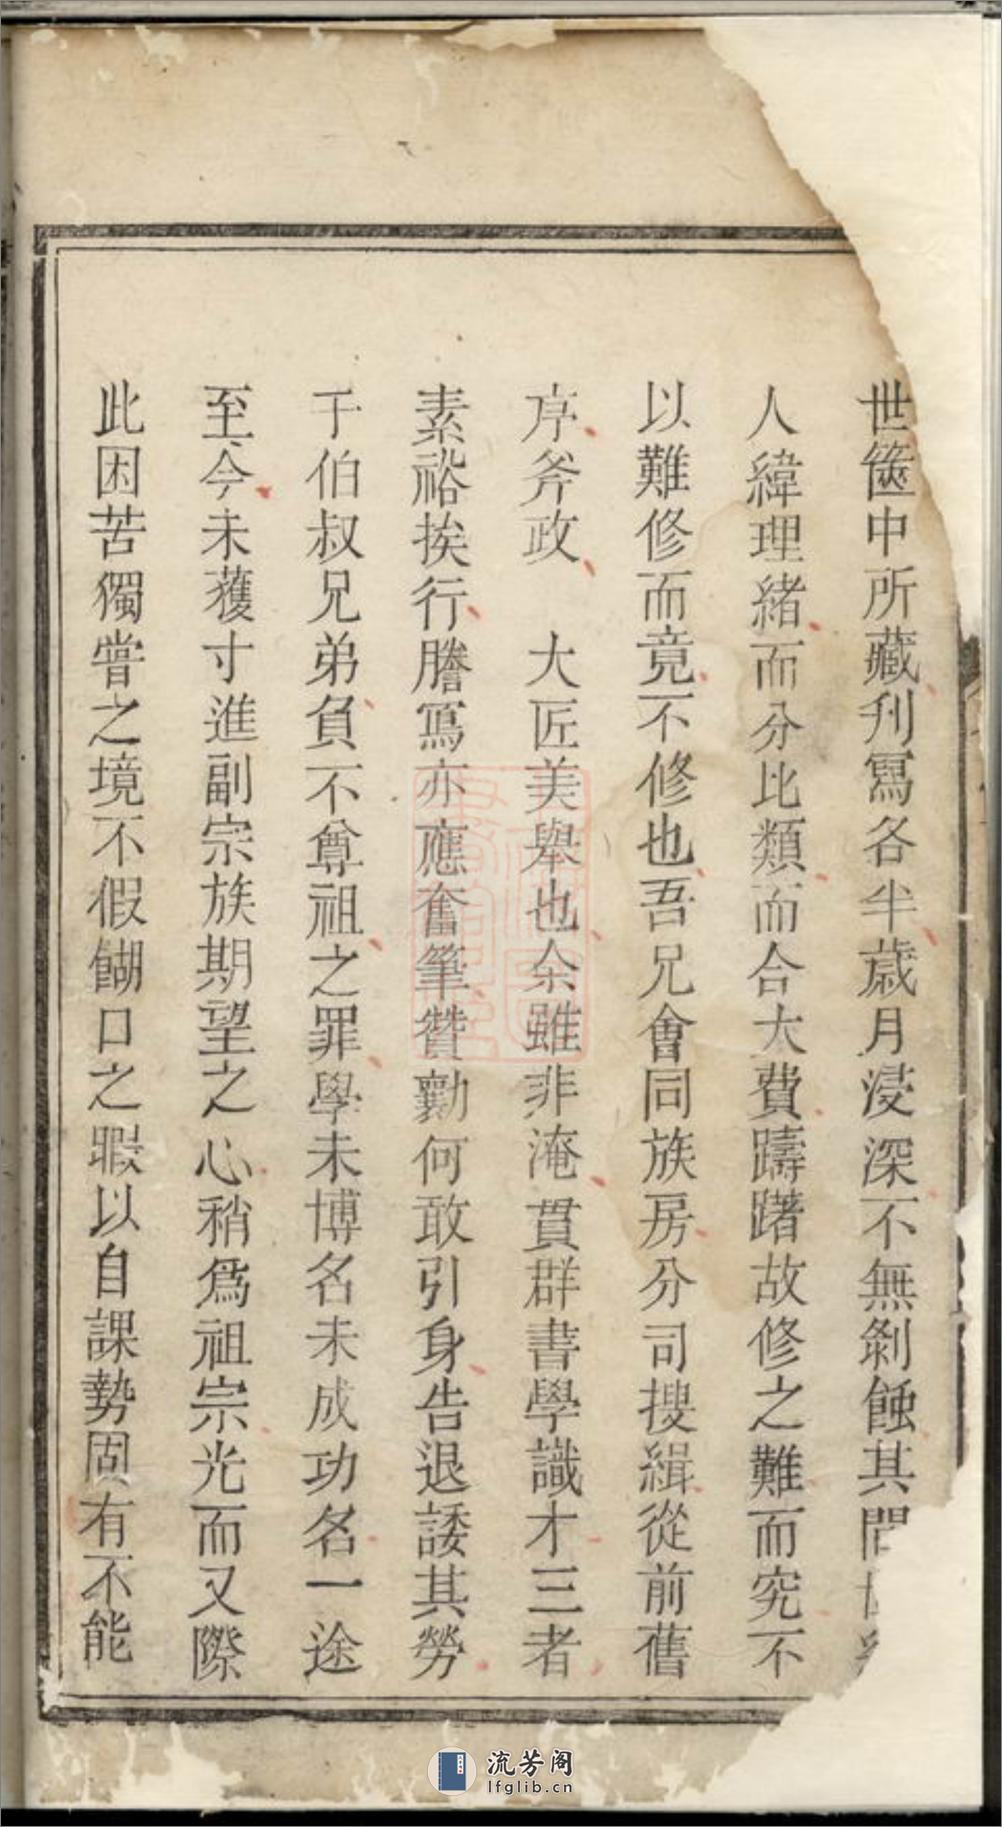 世篋中所藏刋寫各半歲月浸深不無剝蝕其間
人緯理緒而分比類而合大費躊躇故修之難而究不
以難修而竟不修也吾兄會同族房分司搜緝從前舊
序斧政　大匠美舉也余雖非淹貫群書學識才三者
素裕挨行謄寫亦應奮筆贊勷何敢引身告退諉其勞
于伯叔兄弟負不尊祖之罪學未博名未成功名一途
至今未獲寸進副宗族期望之心稍爲祖宗光而又際
此困苦獨嘗之境不假餬口之暇以自課勢固有不能
流芳阁
lfglib.cn